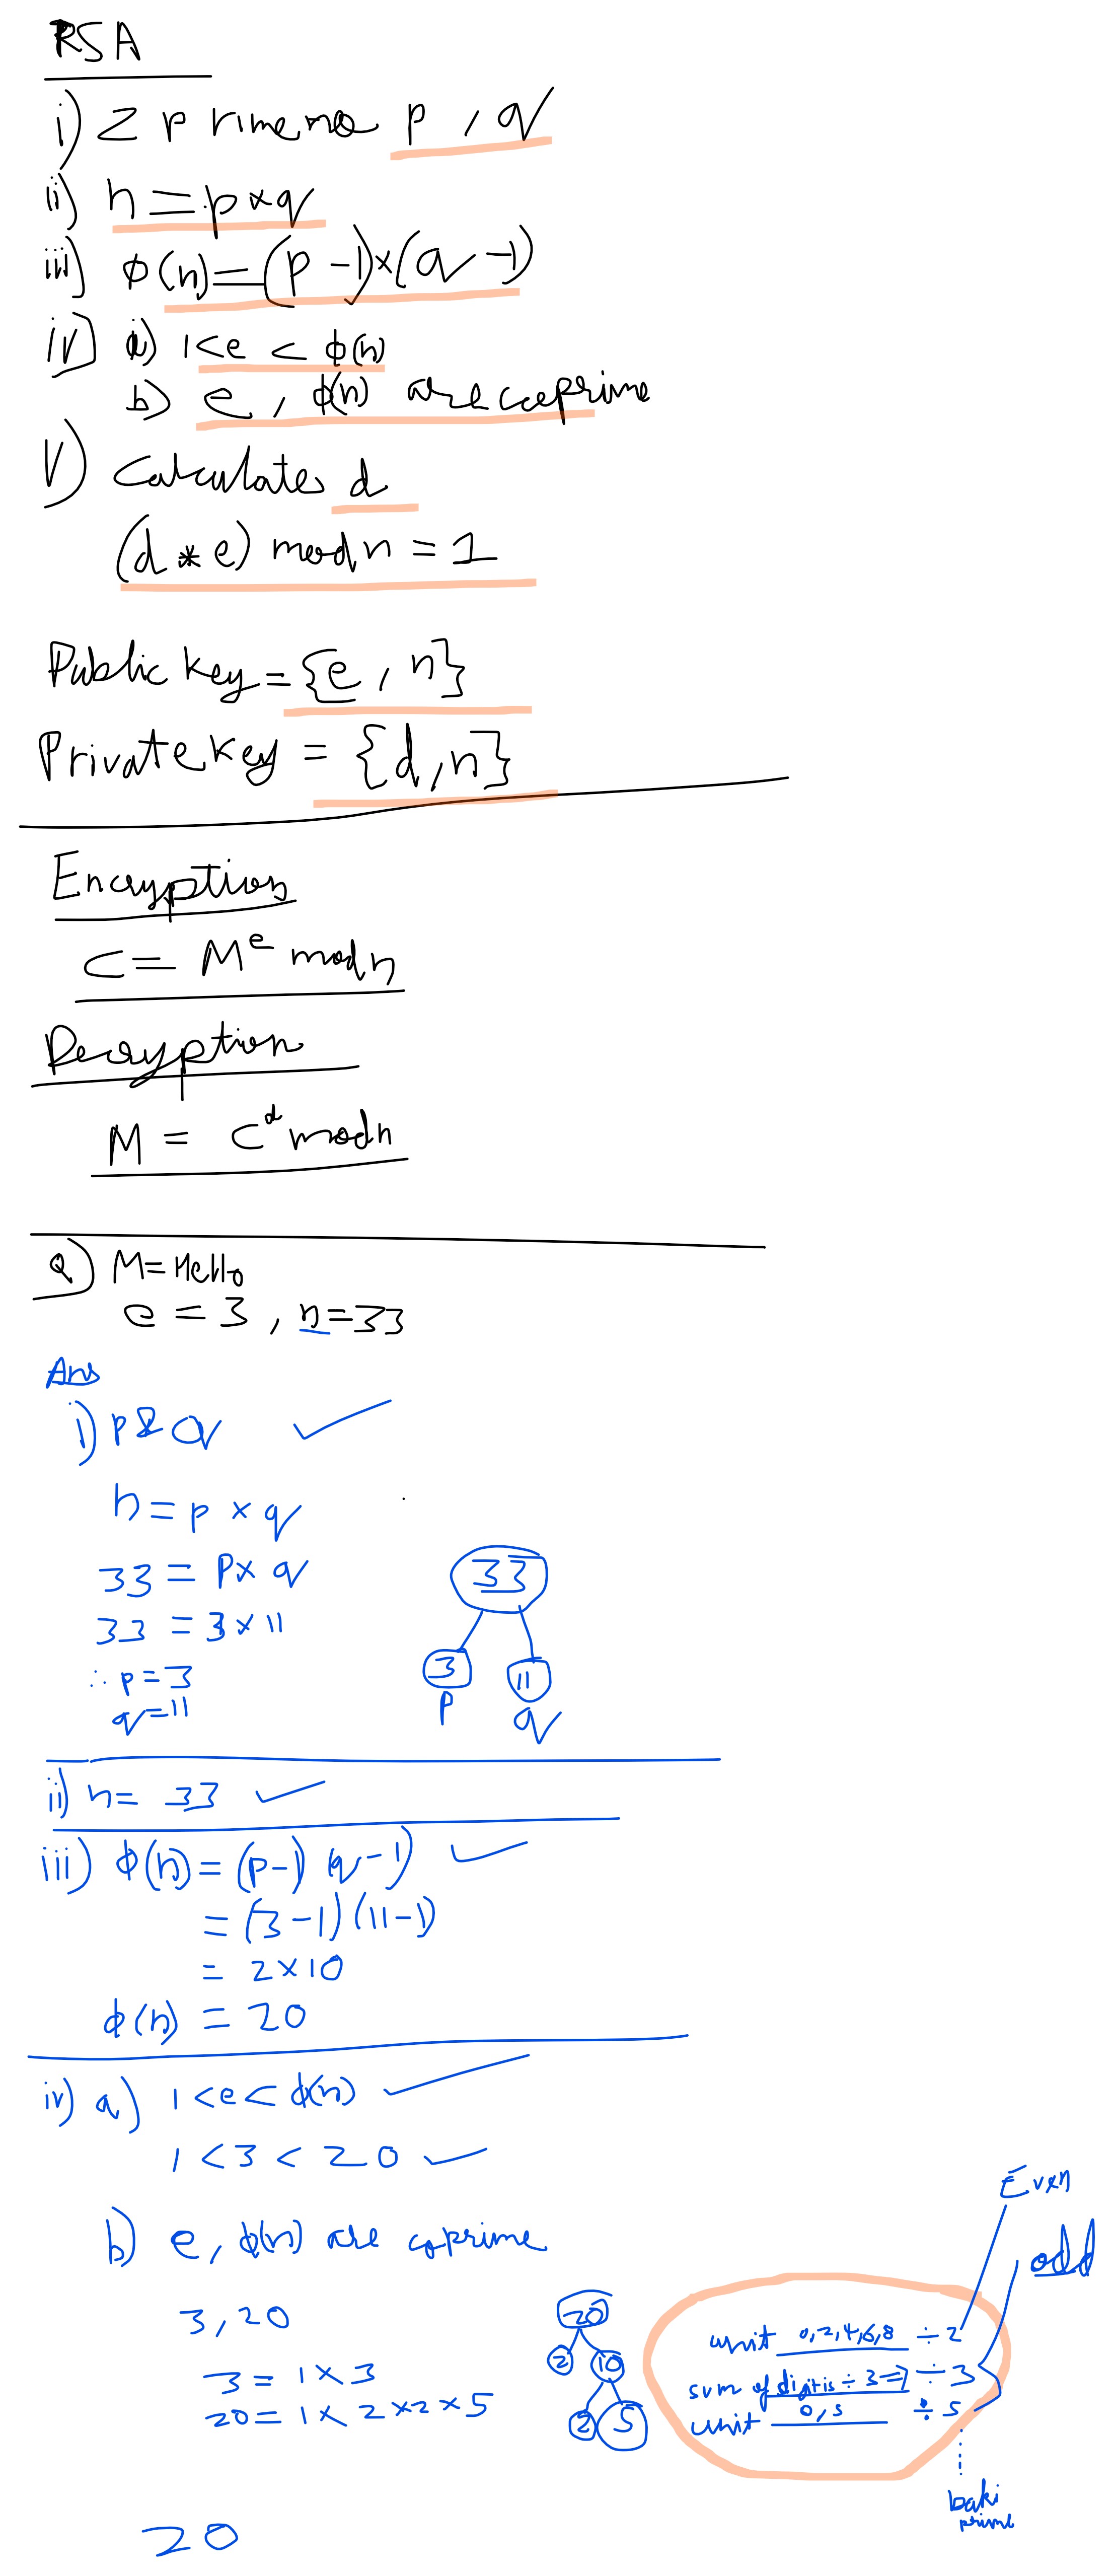 RSA
i) 2 prime no p, q
ii) n = p × q
iii) φ(n) = (p-1)×(q-1)
iv) a) 1<e < φ(n)
b) e, φ(n) are coprime
V) Calculates d
(d * e) mod n = 1
Public key = {e, n}
Private key = {d, n}
Encryption
C = M^e mod n
Decryption
M = C^d mod n
Q) M=Hello
e = 3, n=33
Ans
i) p & q ✓
n = p × q
33 = p × q
33 = 3 × 11
∴ p = 3
q = 11
33
3 11
p q
ii) n = 33 ✓
iii) φ(n) = (p-1) (q-1) ✓
= (3-1) (11-1)
= 2×10
φ(n) = 20
iv) a) 1 <e< φ(n) ✓
1 < 3 < 20 ✓
b) e, φ(n) are coprime
3, 20
3 = 1 × 3
20 = 1 × 2 × 2 × 5
20
2 10
2 5
Even
odd
unit 0,2,4,6,8 ÷ 2
sum of digitis ÷ 3 => ÷ 3
unit 0,5 ÷ 5
baki
prime
20